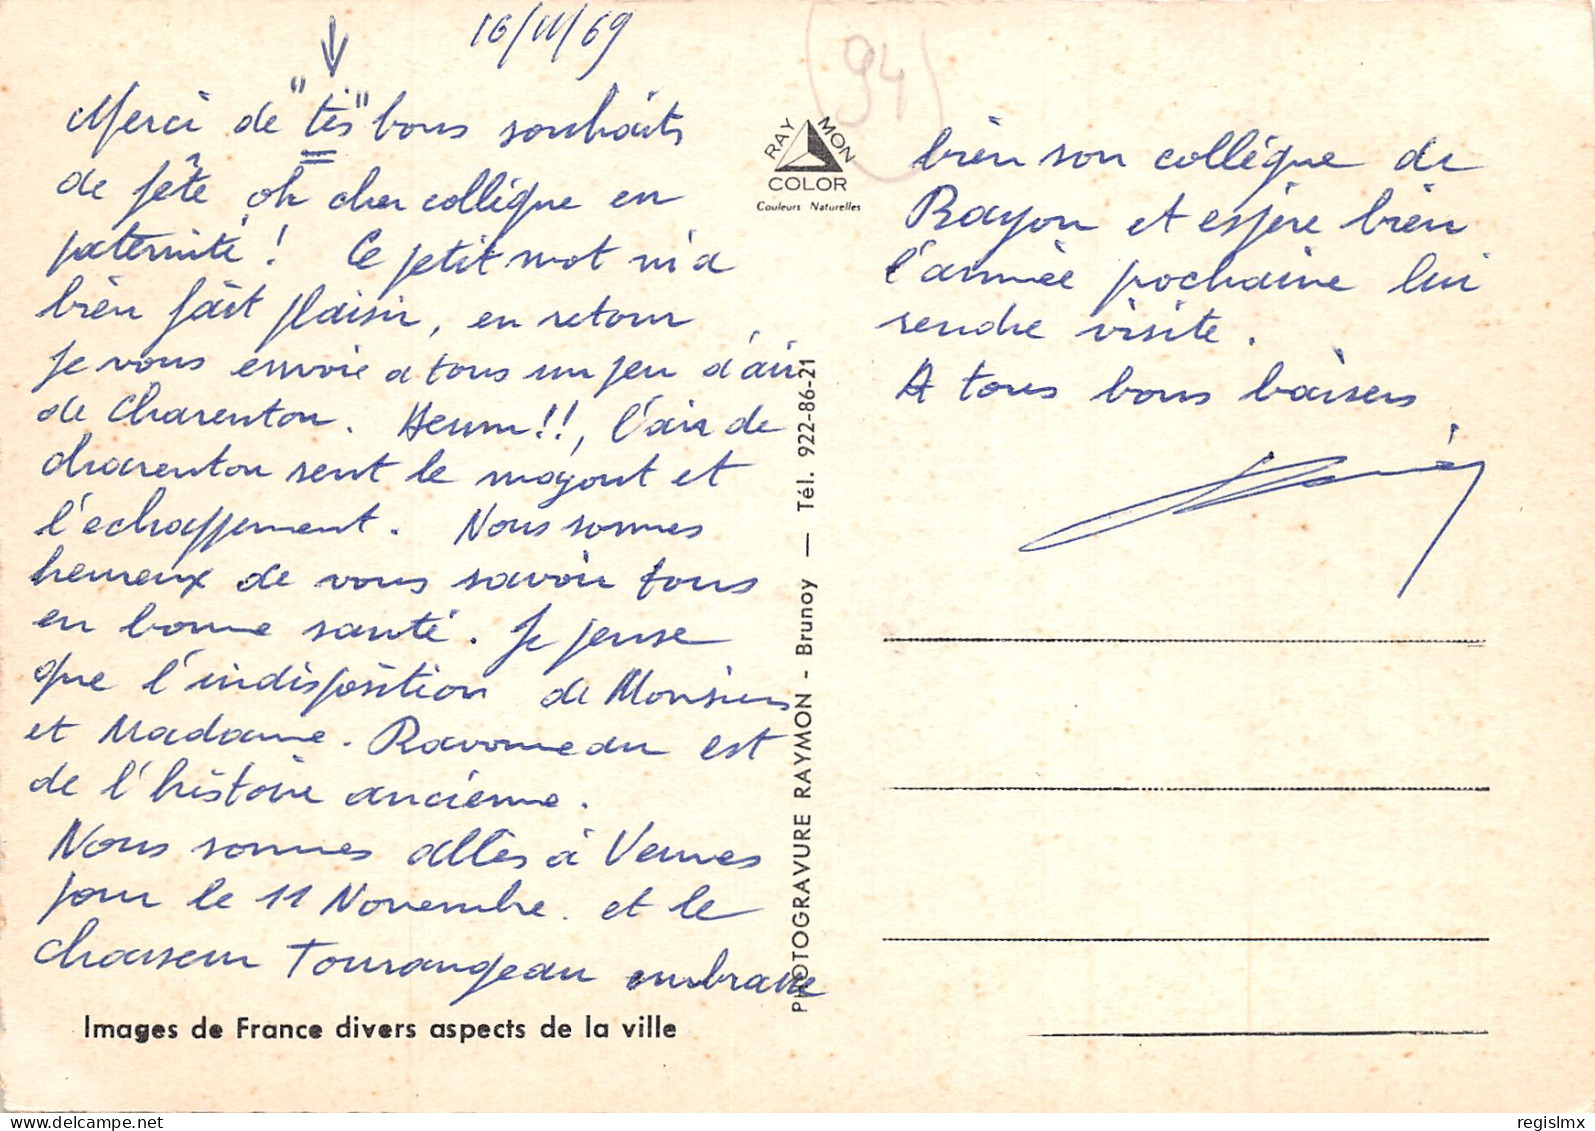 16/11/69
(94)
Merci de "tes" bons souhaits
de fête oh cher collègue en
paternité ! Ce petit mot m'a
bien fait plaisir, en retour
Je vous envoie a tous un peu d'air
de Charenton. Heum!!, l'air de
charenton sent le mazout et
l'echappement. Nous sommes
heureux de vous savoir tous
en bonne santé. Je pense
que l'indisposition de Monsieur
et Madame. Ravoneau est
de l'histoire ancienne.
Nous sommes allés à Vernes
pour le 11 Novembre. et le
chasseur Tourangeau embrasse
Images de France divers aspects de la ville
RAYMON
COLOR
Couleurs Naturelles
PHOTOGRAVURE RAYMON - Brunoy — Tél. 922-86-21
bien son collègue de
Rayon et espère bien
l'année prochaine lui
rendre visite.
A tous bons baisers
regislmx